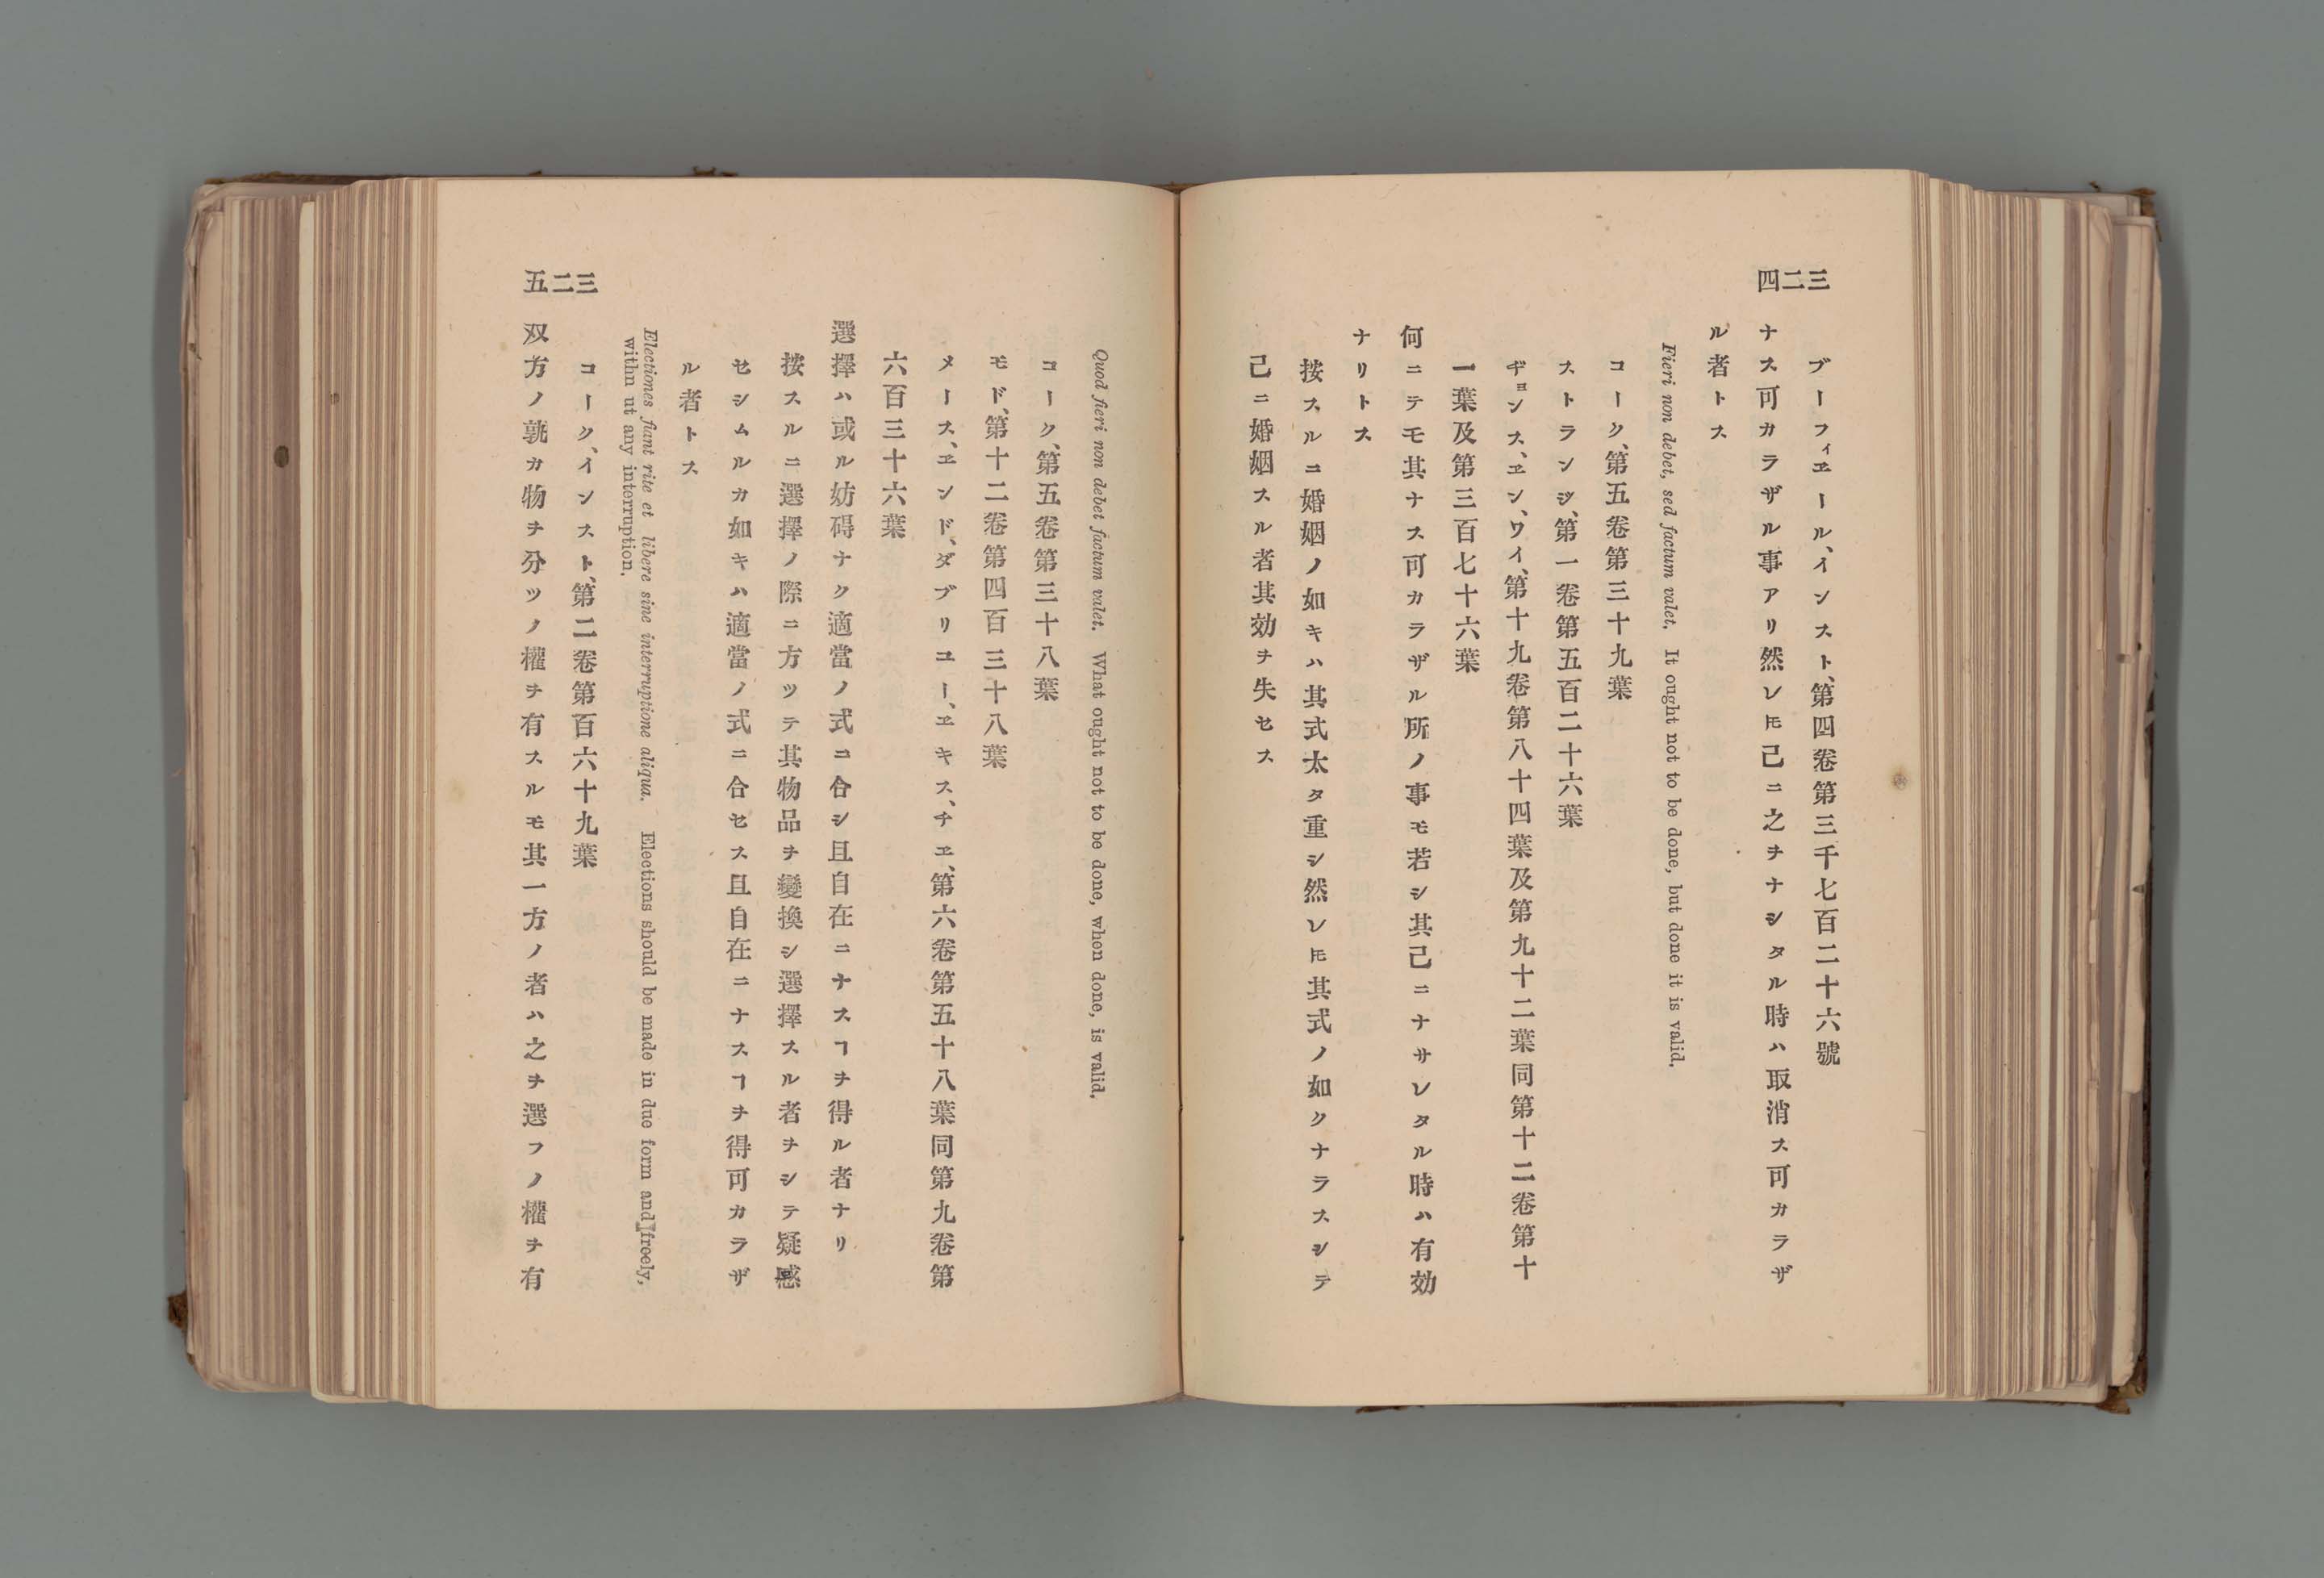 三二四
ブーフィヱール、インスト、第四卷第三千七百二十六號
ナス可カラザル事アリ然レ𪜈己ニ之ヲナシタル時ハ取消ス可カラザ
ル者トス
Fieri non debet, sed factum valet. It ought not to be done, but done it is valid.
コーク、第五卷第三十九葉
ストランジ、第一卷第五百二十六葉
ヂョンス、ヱン、ワイ、第十九卷第八十四葉及第九十二葉同第十二卷第十
一葉及第三百七十六葉
何ニテモ其ナス可カラザル所ノ事モ若シ其己ニナサレタル時ハ有効
ナリトス
按スルニ婚姻ノ如キハ其式太タ重シ然レ𪜈其式ノ如クナラスシテ
己ニ婚姻スル者其効ヲ失セス
Quod fieri non debet factum valet. What ought not to be done, when done, is valid.
コーク、第五卷第三十八葉
モド、第十二卷第四百三十八葉
メース、ヱンド、ダブリユー、ヱキス、チヱ、第六卷第五十八葉同第九卷第
六百三十六葉
選擇ハ或ル妨碍ナク適當ノ式ニ合シ且自在ニナスヿヲ得ル者ナリ
按スルニ選擇ノ際ニ方ツテ其物品ヲ變換シ選擇スル者ヲシテ疑惑
セシムルカ如キハ適當ノ式ニ合セス且自在ニナスヿヲ得可カラザ
ル者トス
Electiones fiant rite et libere sine interruptione aliqua. Elections should be made in due form and freely,
withn ut any interruption.
コーク、インスト、第二卷第百六十九葉
三二五
双方ノ孰カ物ヲ分ツノ權ヲ有スルモ其一方ノ者ハ之ヲ選フノ權ヲ有